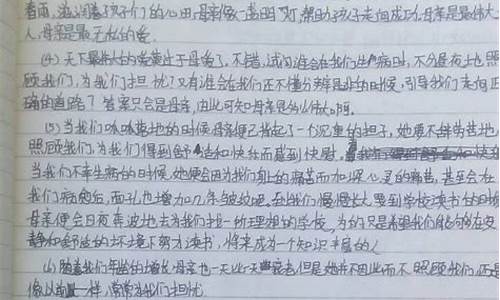 春雨,滋润着孩子们的心田,母亲像一盏明灯,帮助孩子走向成功,母亲是最伟大
人,母亲是最无私的爱。
(4)天下最伟大的爱莫过于母爱了,不错,试问谁会在我们生病时,不分昼夜地照
顾我们,为我们担忧?又有谁会在我们还不懂分辨是非的时候,引导我们走向正
确的道路?答案只会是母亲,由此可知母亲是多么伟大啊。
(5)当我们呱呱落地的时候母亲便已背起了一个沉重的担子,她要不辞劳苦地
照顾我们,为我们得到舒适和快乐而感到快慰,
当我们不幸生病的时候,她便会因为我们身上的病苦而加深心灵的痛苦,甚至会在
我们病愈后,面孔也增加几条皱纹呢。在我们慢慢长大要到学校读书的时候
母亲便会日夜奔波地去为我们找一所理想的学校,为的只是希望我们能够在安
静和舒适的环境下努力读书,将来成为一个知识丰富的人
(6)随着我们年龄的增长,母亲也一天比一天衰老,但是她并不因此而不照顾我们,还是
像以前一样,常常为我们担忧